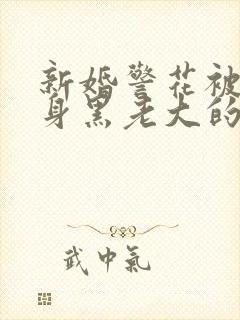 新婚警花被
身黑老大的
武中氣